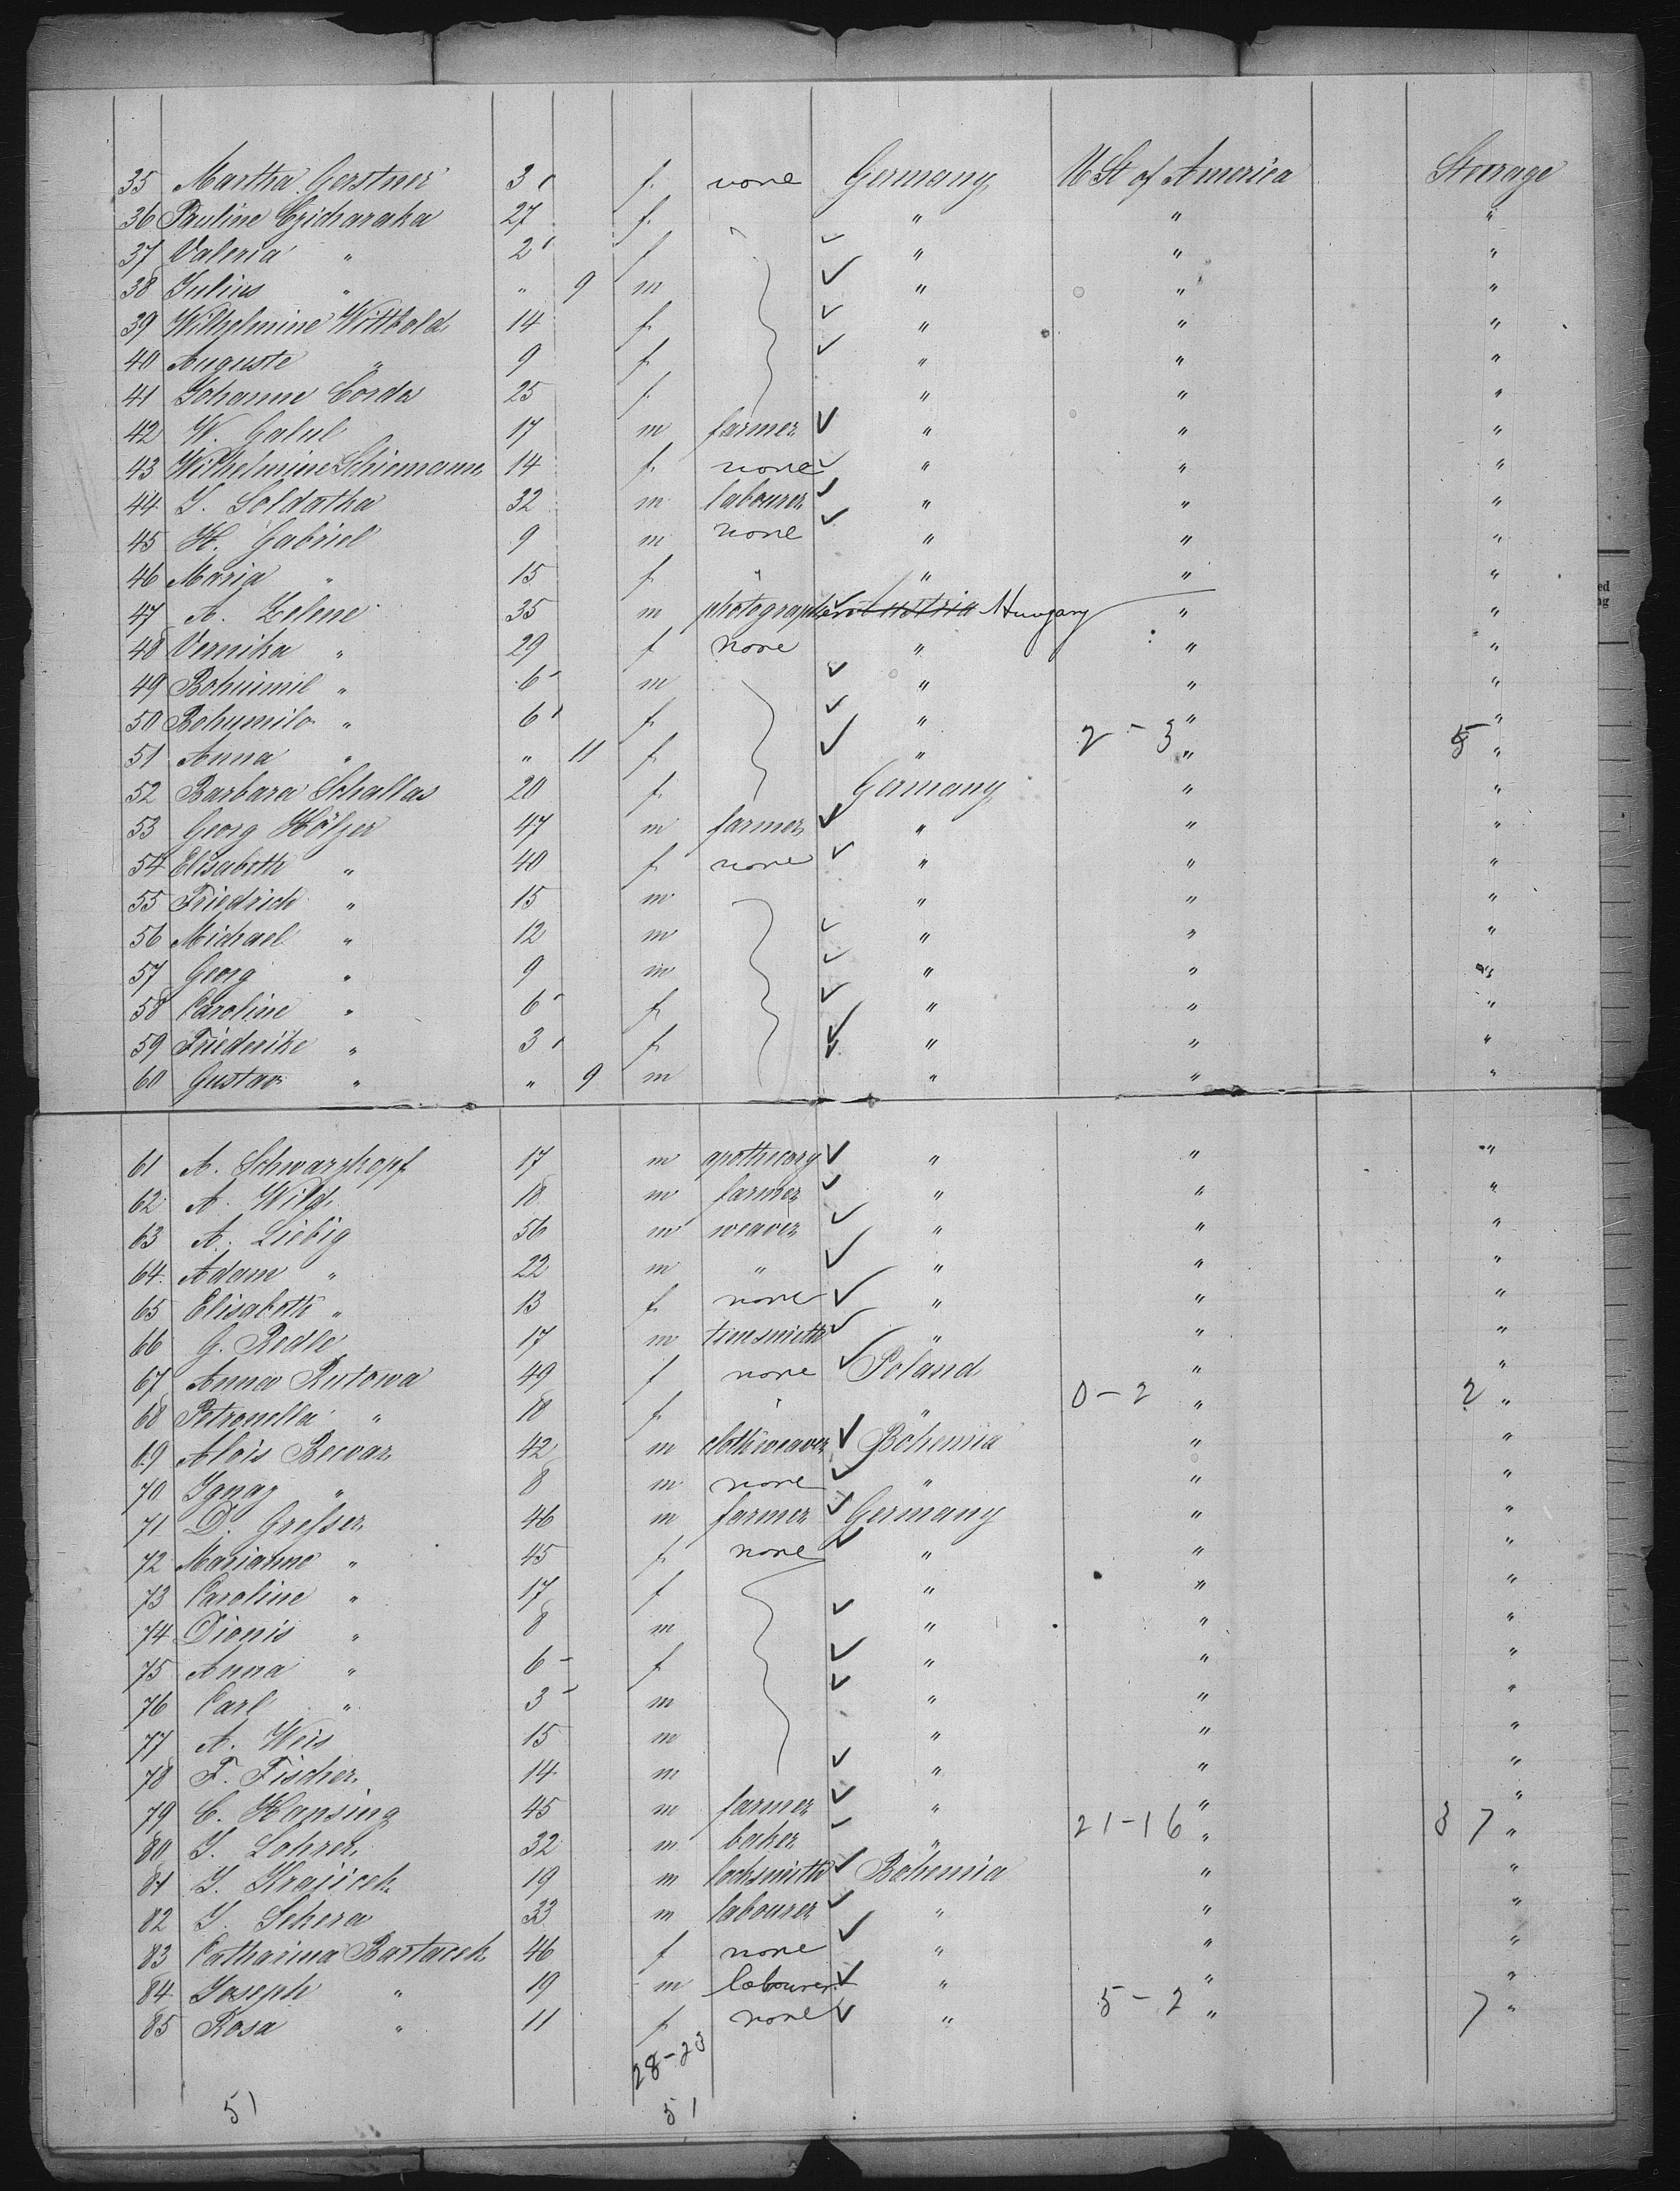 35 Martha Gerstner 3 f. none Germany U St of America Steerage
36 Pauline 27 f. " " "
37 Valeria " 2 f " " "
38 Julius " " 9 m " " "
39 Wilhelmine Wittbold 14 f. " " "
40 Auguste " 9 f. " " "
41 Johanne Corda 25 f. " " "
42 W. Galul 17 m farmer " " "
43 Wilhelmine Schiemann 14 f. none " " "
44 J. Soldatka 32 m labourer " " "
45 H. Gabriel 9 m none " " "
46 Maria " 15 f. " " " "
47 A. Zelene 35 m photographer Hungary " "
48 Vernika " 29 f none " " "
49 Bohumil " 6 m " " "
50 Bohumila " 6 f. " " "
51 Anna " " 11 f. " 2 - 3 " 5 "
52 Barbara Schallas 20 f. Germany " "
53 Georg Hölzer 47 m farmer " " "
54 Elisabeth " 40 f. none " " "
55 Friedrich " 15 m " " "
56 Michael " 12 m " " "
57 Georg " 9 m " " "
58 Caroline " 6 f. " " "
59 Friederike " 3 f. " " "
60 Gustav " " 9 m " " "
61 A. Schwarzkopf 17 m apothecary " " "
62 A. Wild 18 m farmer " " "
63 A. Liebig 56 m weaver " " "
64 Adam " 22 m " " " "
65 Elisabeth " 13 f. none " " "
66 G. Redle 17 m tinesmith " " "
67 Anna Rutowa 49 f none Poland " "
68 Petronella " 18 f. " " 0 - 2 " 2 "
69 Alois Becvar 42 m clothweaver Bohemia " "
70 Ignaz " 8 m none " " "
71 D. Grefser 46 m farmer Germany " "
72 Marianne " 45 f. none " " "
73 Caroline " 17 f " " "
74 Dionis " 8 m " " "
75 Anna " 6 f " " "
76 Carl " 3 m " " "
77 A. Weis 15 m " " "
78 F. Fischer 14 m " " "
79 C. Hansing 45 m farmer " " "
80 J. Lohrer 32 m baker " 21-16 " 37 "
81 J. Krajicek 19 m locksmith Bohemia " "
82 J. Sekera 33 m labourer " " "
83 Catharina Bartacek 46 f none " " "
84 Joseph " 19 m labourer " " "
85 Rosa " 11 f. none " 5 - 2 " 7 "
28-23
51 51